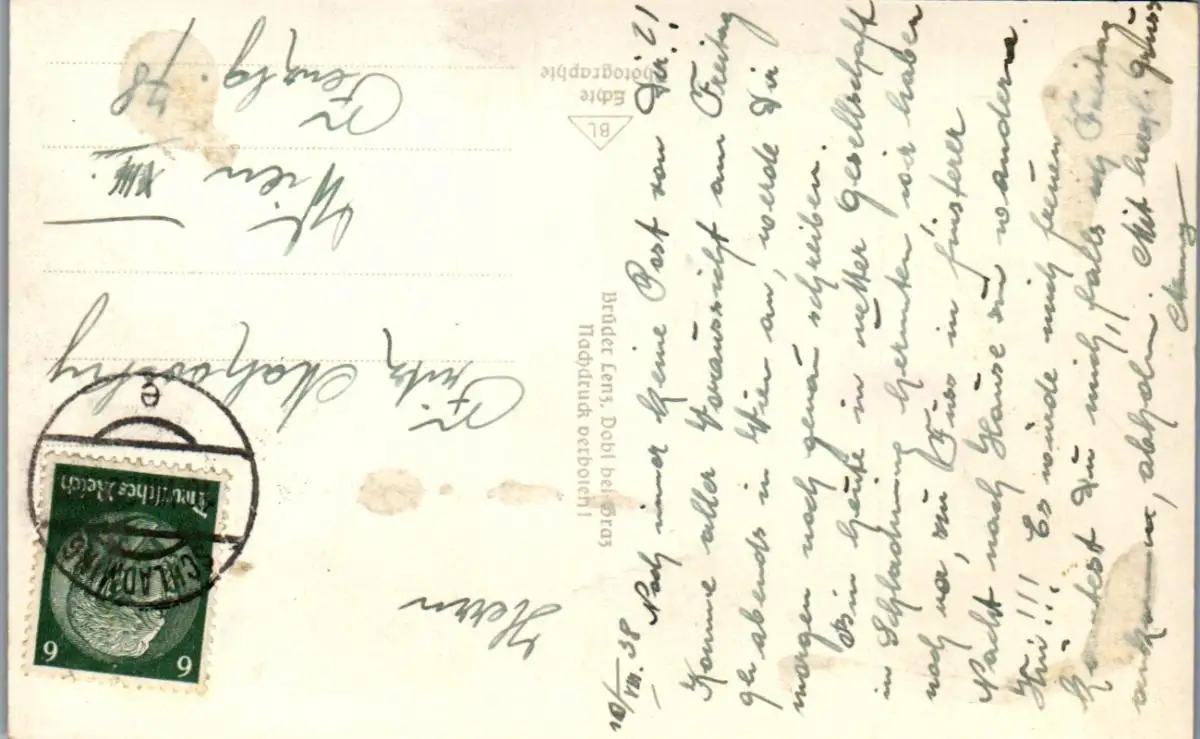 10/VIII. 38
Noch immer keine Post von Dir!!
Komme aller Voraussicht am Freitag
abends in Wien an, werde Dir
morgen noch genau schreiben.
Bin heute in netter Gesellschaft
in Schladming herunten, wir haben
noch vor, zu Fuss in finsterer
Nacht nach Hause zu wandern.
Hui!!! Es würde mich freuen
Du mich, falls ich Freitag
ankomme, abholen. Mit herzl. Gruss
Echte
Photographie
BL
Brüder Lenz, Dobl bei Graz
Nachdruck verboten!
Herrn
Fritz
Wien
XIII.
78
Deutsches Reich
6 6
SCHLADMING
e